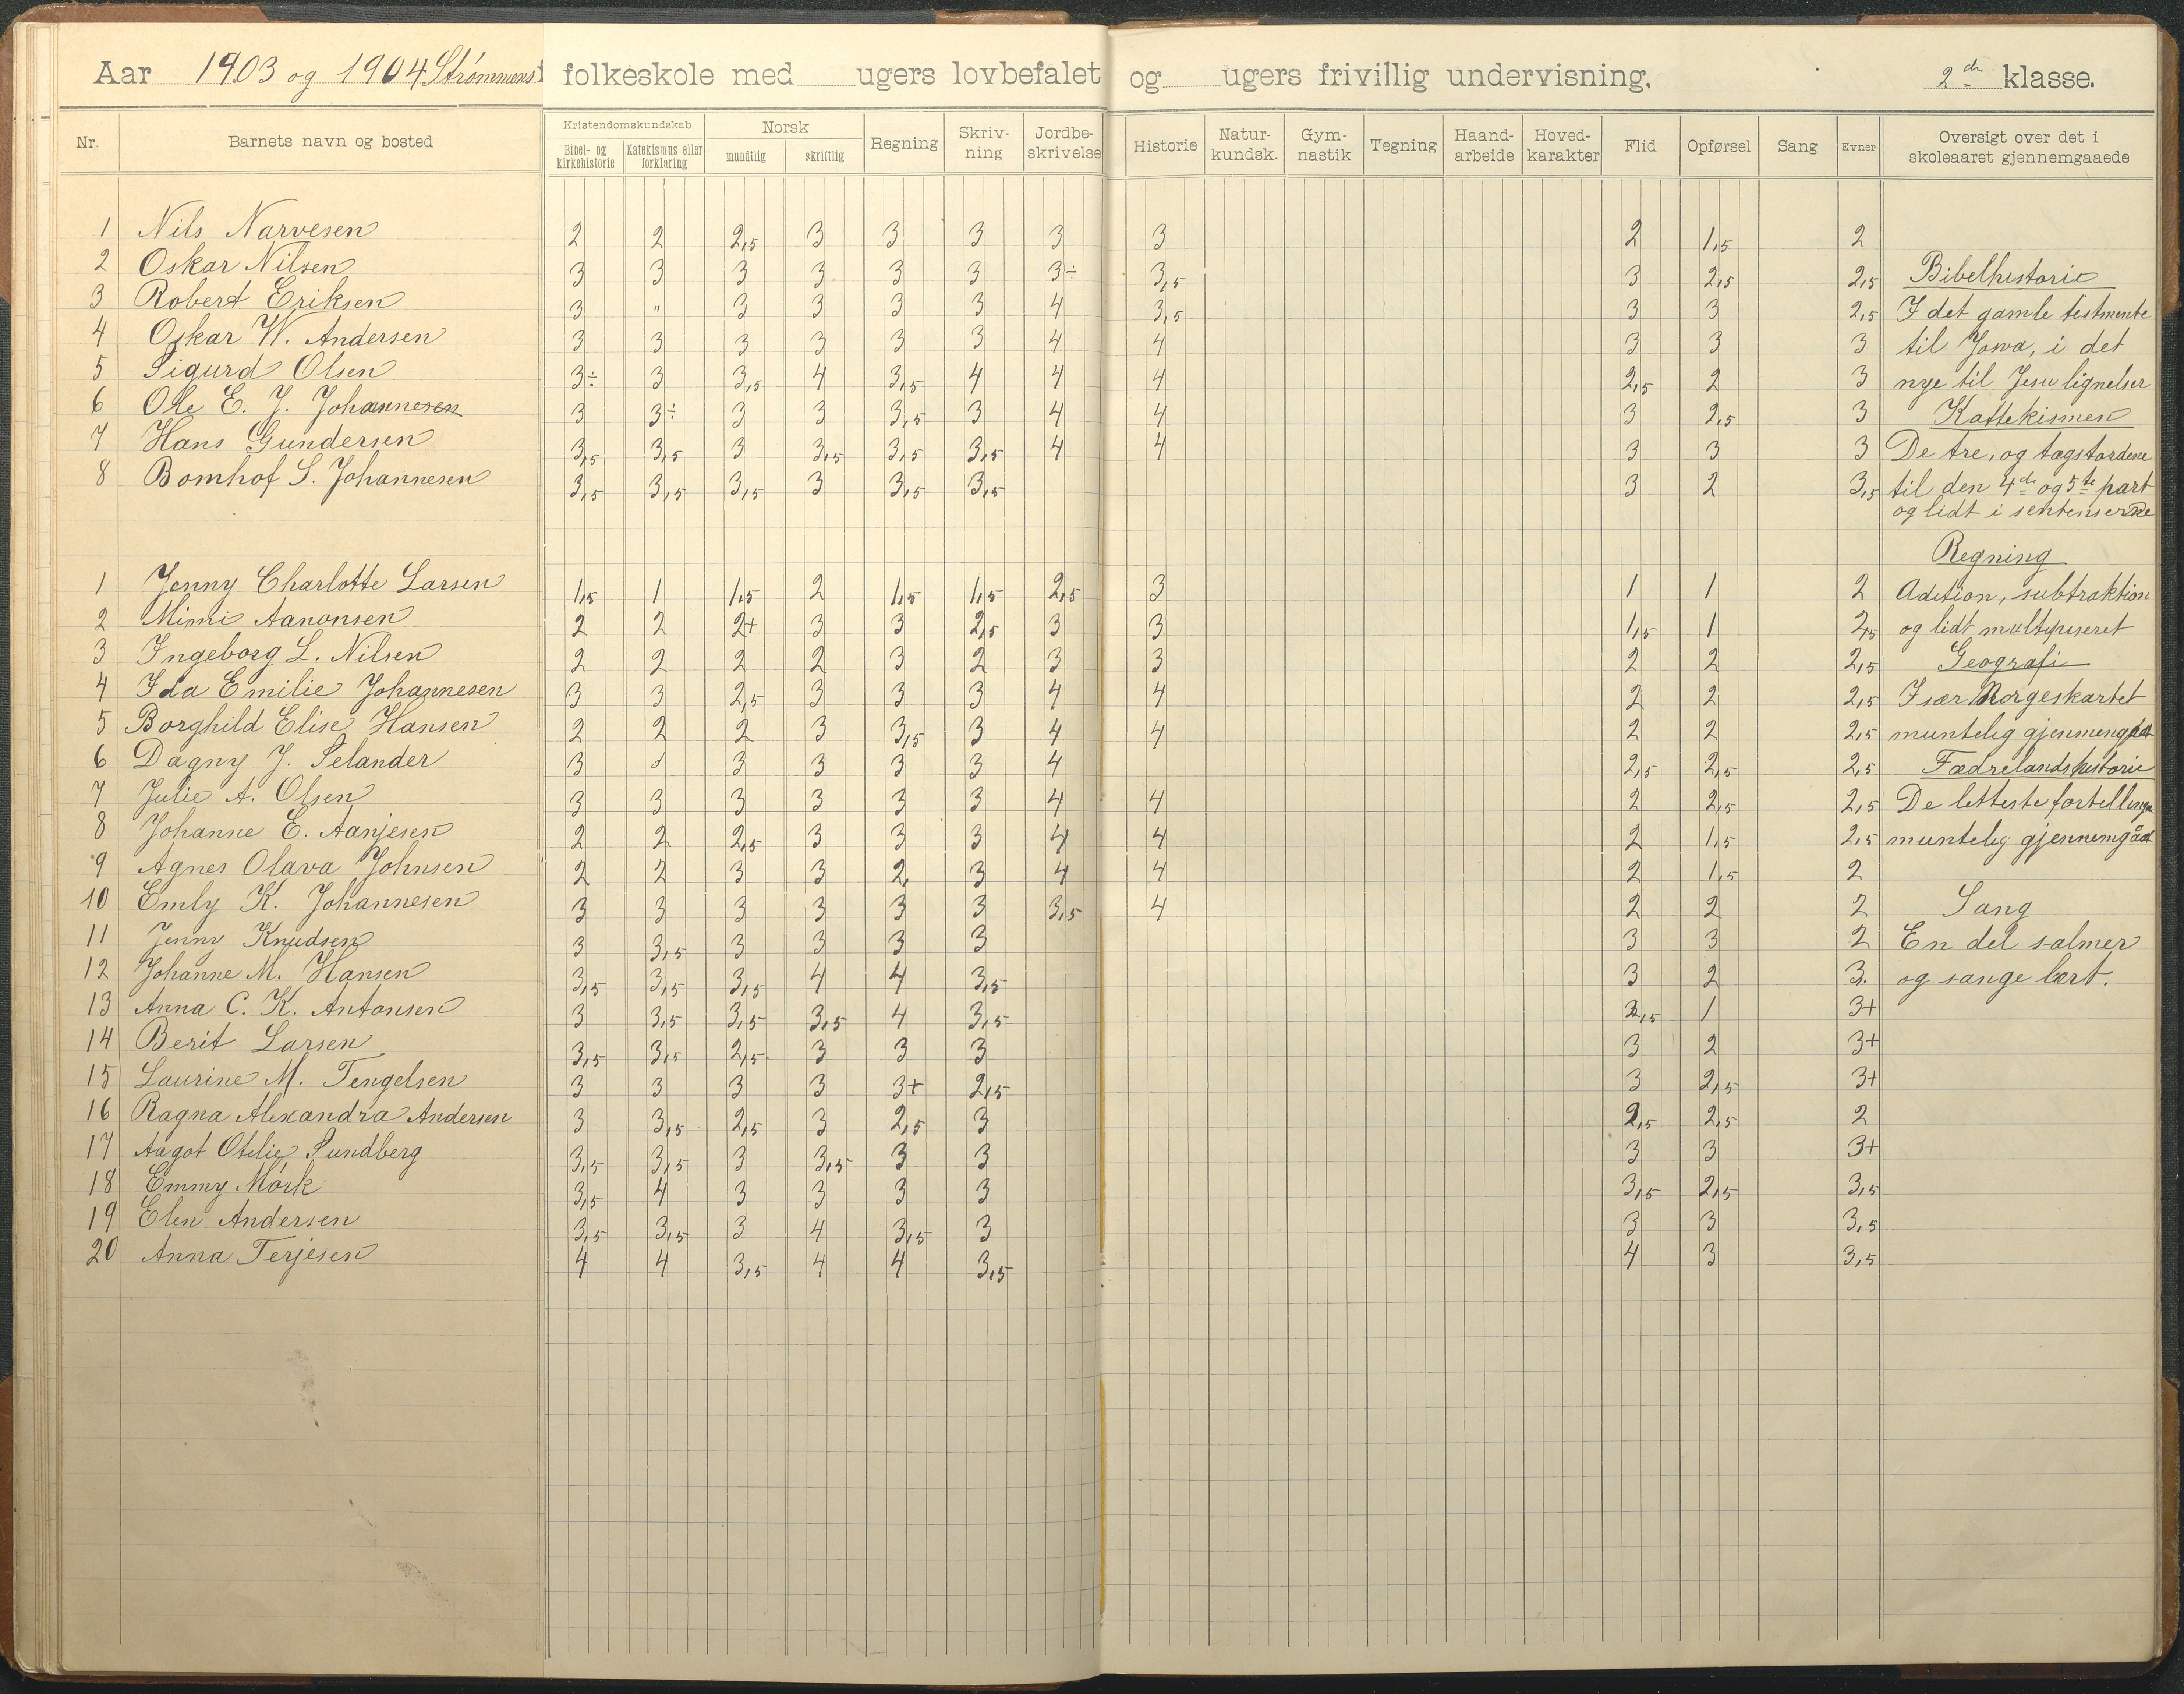 Aar 1903 og 1904 Strømmens folkeskole med ugers lovbefalet og ugers frivillig undervisning, 2de klasse.
Nr. Barnets navn og bosted Kristendomskundskab Bibel- og kirkehistorie Katekismus eller forklaring Norsk mundtlig skriftlig Regning Skriv-ning Jordbe-skrivelse Historie Natur-kundsk. Gym-nastik Tegning Haand-arbeide Hoved-karakter Flid Opførsel Sang Evner Oversigt over det i skoleaaret gjennemgaaede
1 Nils Narvesen 2 2 2,5 3 3 3 3 3 2 1,5 2
2 Oskar Nilsen 3 3 3 3 3 3 3÷ 3,5 3 2,5 2,5 Bibelhistorie
3 Robert Eriksen 3 " 3 3 3 3 4 3,5 3 3 2,5 I det gamle testmente
4 Oskar W. Andersen 3 3 3 3 3 3 4 4 3 3 3 til Josva, i det
5 Sigurd Olsen 3÷ 3 3,5 4 3,5 4 4 4 2,5 2 3 nye til Jesu lignelser
6 Ole E. J. Johannesen 3 3÷ 3 3 3,5 3 4 4 3 2,5 3 Kattekismen
7 Hans Gundersen 3,5 3,5 3 3,5 3,5 3,5 4 4 3 3 3 De tre, og
8 Bomhof S. Johannesen 3,5 3,5 3,5 3 3,5 3,5 3 2 3,5 til den 4de og 5te part
og lidt i sentenserne
Regning
1 Jenny Charlotte Larsen 1,5 1 1,5 2 1,5 1,5 2,5 3 1 1 2 Adition, subtraktion
2 Mimi Aanonsen 2 2 2+ 3 3 2,5 3 3 1,5 1 2,5 og lidt
3 Ingeborg L. Nilsen 2 2 2 2 3 2 3 3 2 2 2,5 Geografi
4 Ida Emilie Johannesen 3 3 2,5 3 3 3 4 4 2 2 2,5 Især Norgeskartet
5 Borghild Elise Hansen 2 2 2 3 3,5 3 4 4 2 2 2,5 muntelig
6 Dagny J. Selander 3 3 3 3 3 4 2,5 2,5 2,5 Fædrelandshistorie
7 Julie A. Olsen 3 3 3 3 3 3 4 4 2 2,5 2,5 De letteste fortellinger
8 Johanne E. Aanjesen 2 2 2,5 3 3 3 4 4 2 1,5 2,5 muntelig gjennemgåat
9 Agnes Olava Johnsen 2 2 3 3 2, 3 4 4 2 1,5 2
10 Emly K. Johannesen 3 3 3 3 3 3 3,5 4 2 2 2 Sang
11 Jenny Knudsen 3 3,5 3 3 3 3 3 3 2 En del salmer
12 Johanne M. Hansen 3,5 3,5 3,5 4 4 3,5 3 2 3. og sange lært.
13 Anna C. K. Antonsen 3 3,5 3,5 3,5 4 3,5 2,5 1 3+
14 Berit Larsen 3,5 3,5 2,5 3 3 3 3 2 3+
15 Laurine M. Tengelsen 3 3 3 3 3+ 2,5 3 2,5 3+
16 Ragna Alexandra Andersen 3 3,5 2,5 3 2,5 3 2,5 2,5 2
17 Aagot Otilie Sundberg 3,5 3,5 3 3,5 3 3 3 3 3+
18 Emmy Mörk 3,5 4 3 3 3 3 3,5 2,5 3,5
19 Elen Andersen 3,5 3,5 3 4 3,5 3 3 3 3,5
20 Anna Terjesen 4 4 3,5 4 4 3,5 4 3 3,5